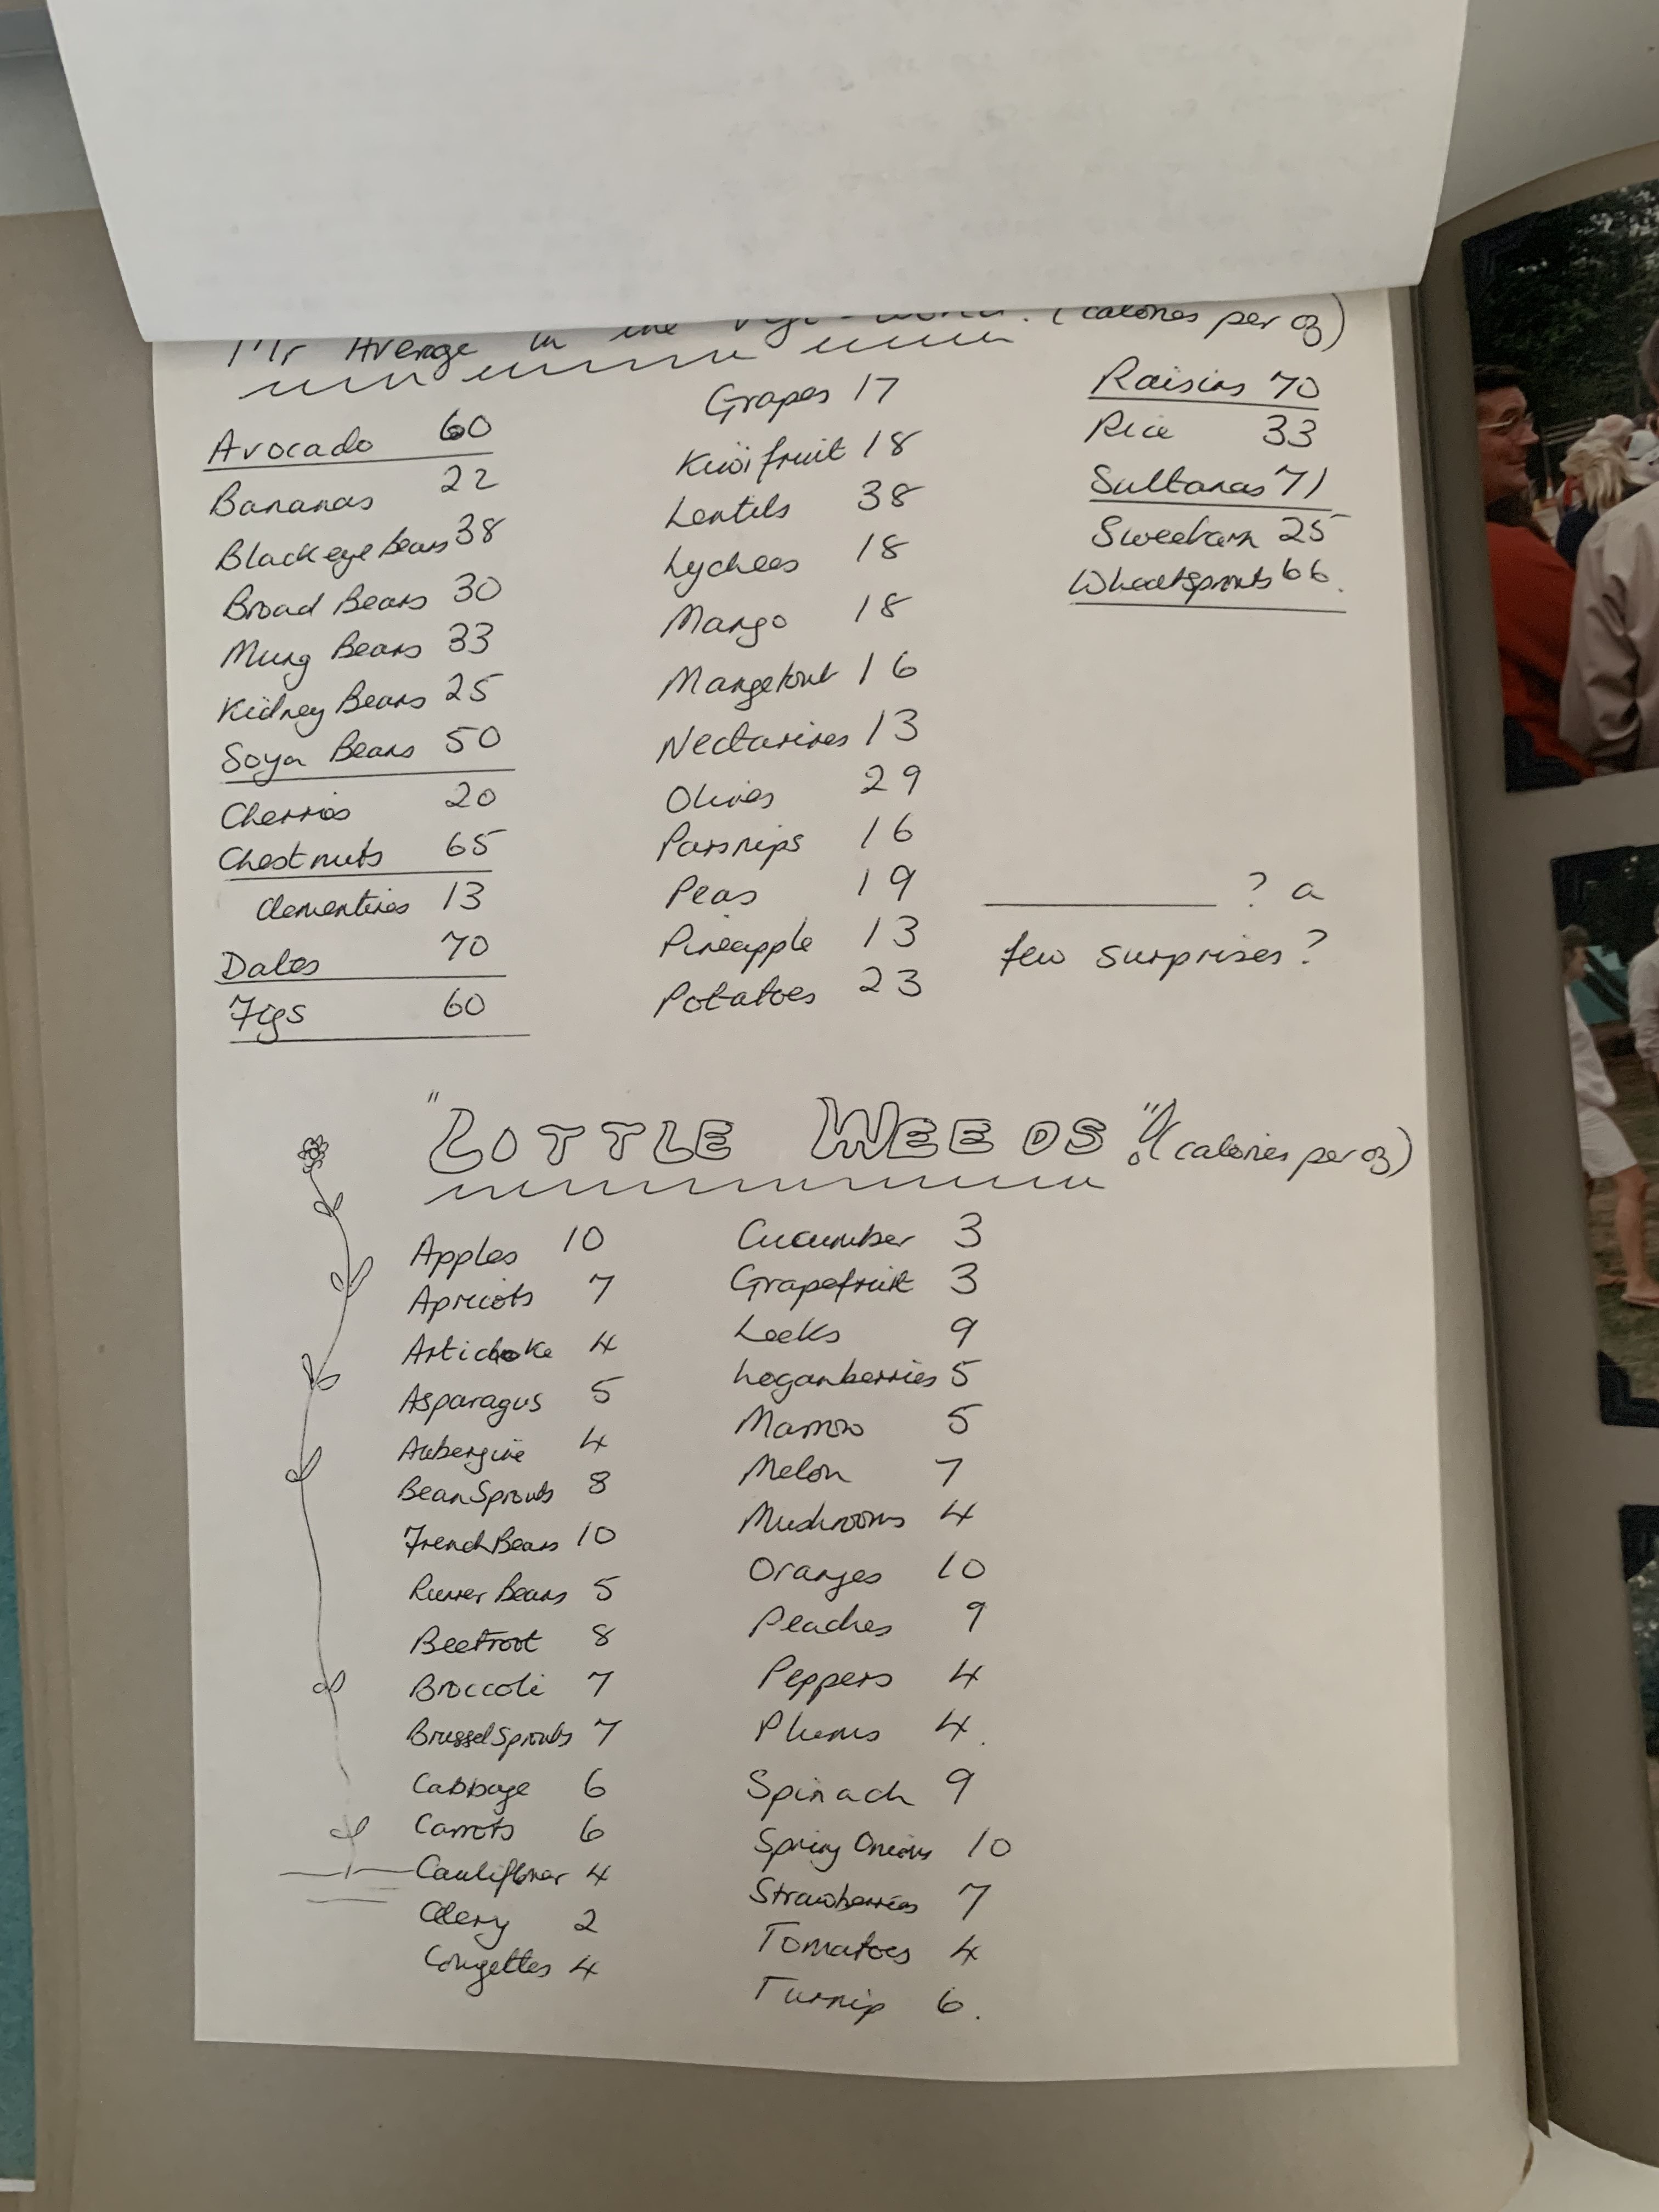 Mr Average in the (calories per oz)
Avocado 60
Bananas 22
Blackeye Beans 38
Broad Beans 30
Mung Beans 33
Kidney Beans 25
Soya Beans 50
Cherries 20
Chestnuts 65
Clementines 13
Dates 70
Figs 60
Grapes 17
Kiwifruit 18
Lentils 38
Lychees 18
Mango 18
Mangetout 16
Nectarines 13
Olives 29
Parsnips 16
Peas 19
Pineapple 13
Potatoes 23
Raisins 70
Rice 33
Sultanas 71
Sweetcorn 25
Wheatsprouts 66.
? a
few surprises?
"LITTLE WEEDS"! (calories per oz)
Apples 10
Apricots 7
Artichoke 4
Asparagus 5
Aubergine 4
Bean Sprouts 8
French Beans 10
Runner Beans 5
Beetroot 8
Broccoli 7
Brussel Sprouts 7
Cabbage 6
Carrots 6
Cauliflower 4
Celery 2
Courgettes 4
Cucumber 3
Grapefruit 3
Leeks 9
Loganberries 5
Marrow 5
Melon 7
Mushrooms 4
Oranges 10
Peaches 9
Peppers 4
Plums 4.
Spinach 9
Spring Onions 10
Strawberries 7
Tomatoes 4
Turnip 6.